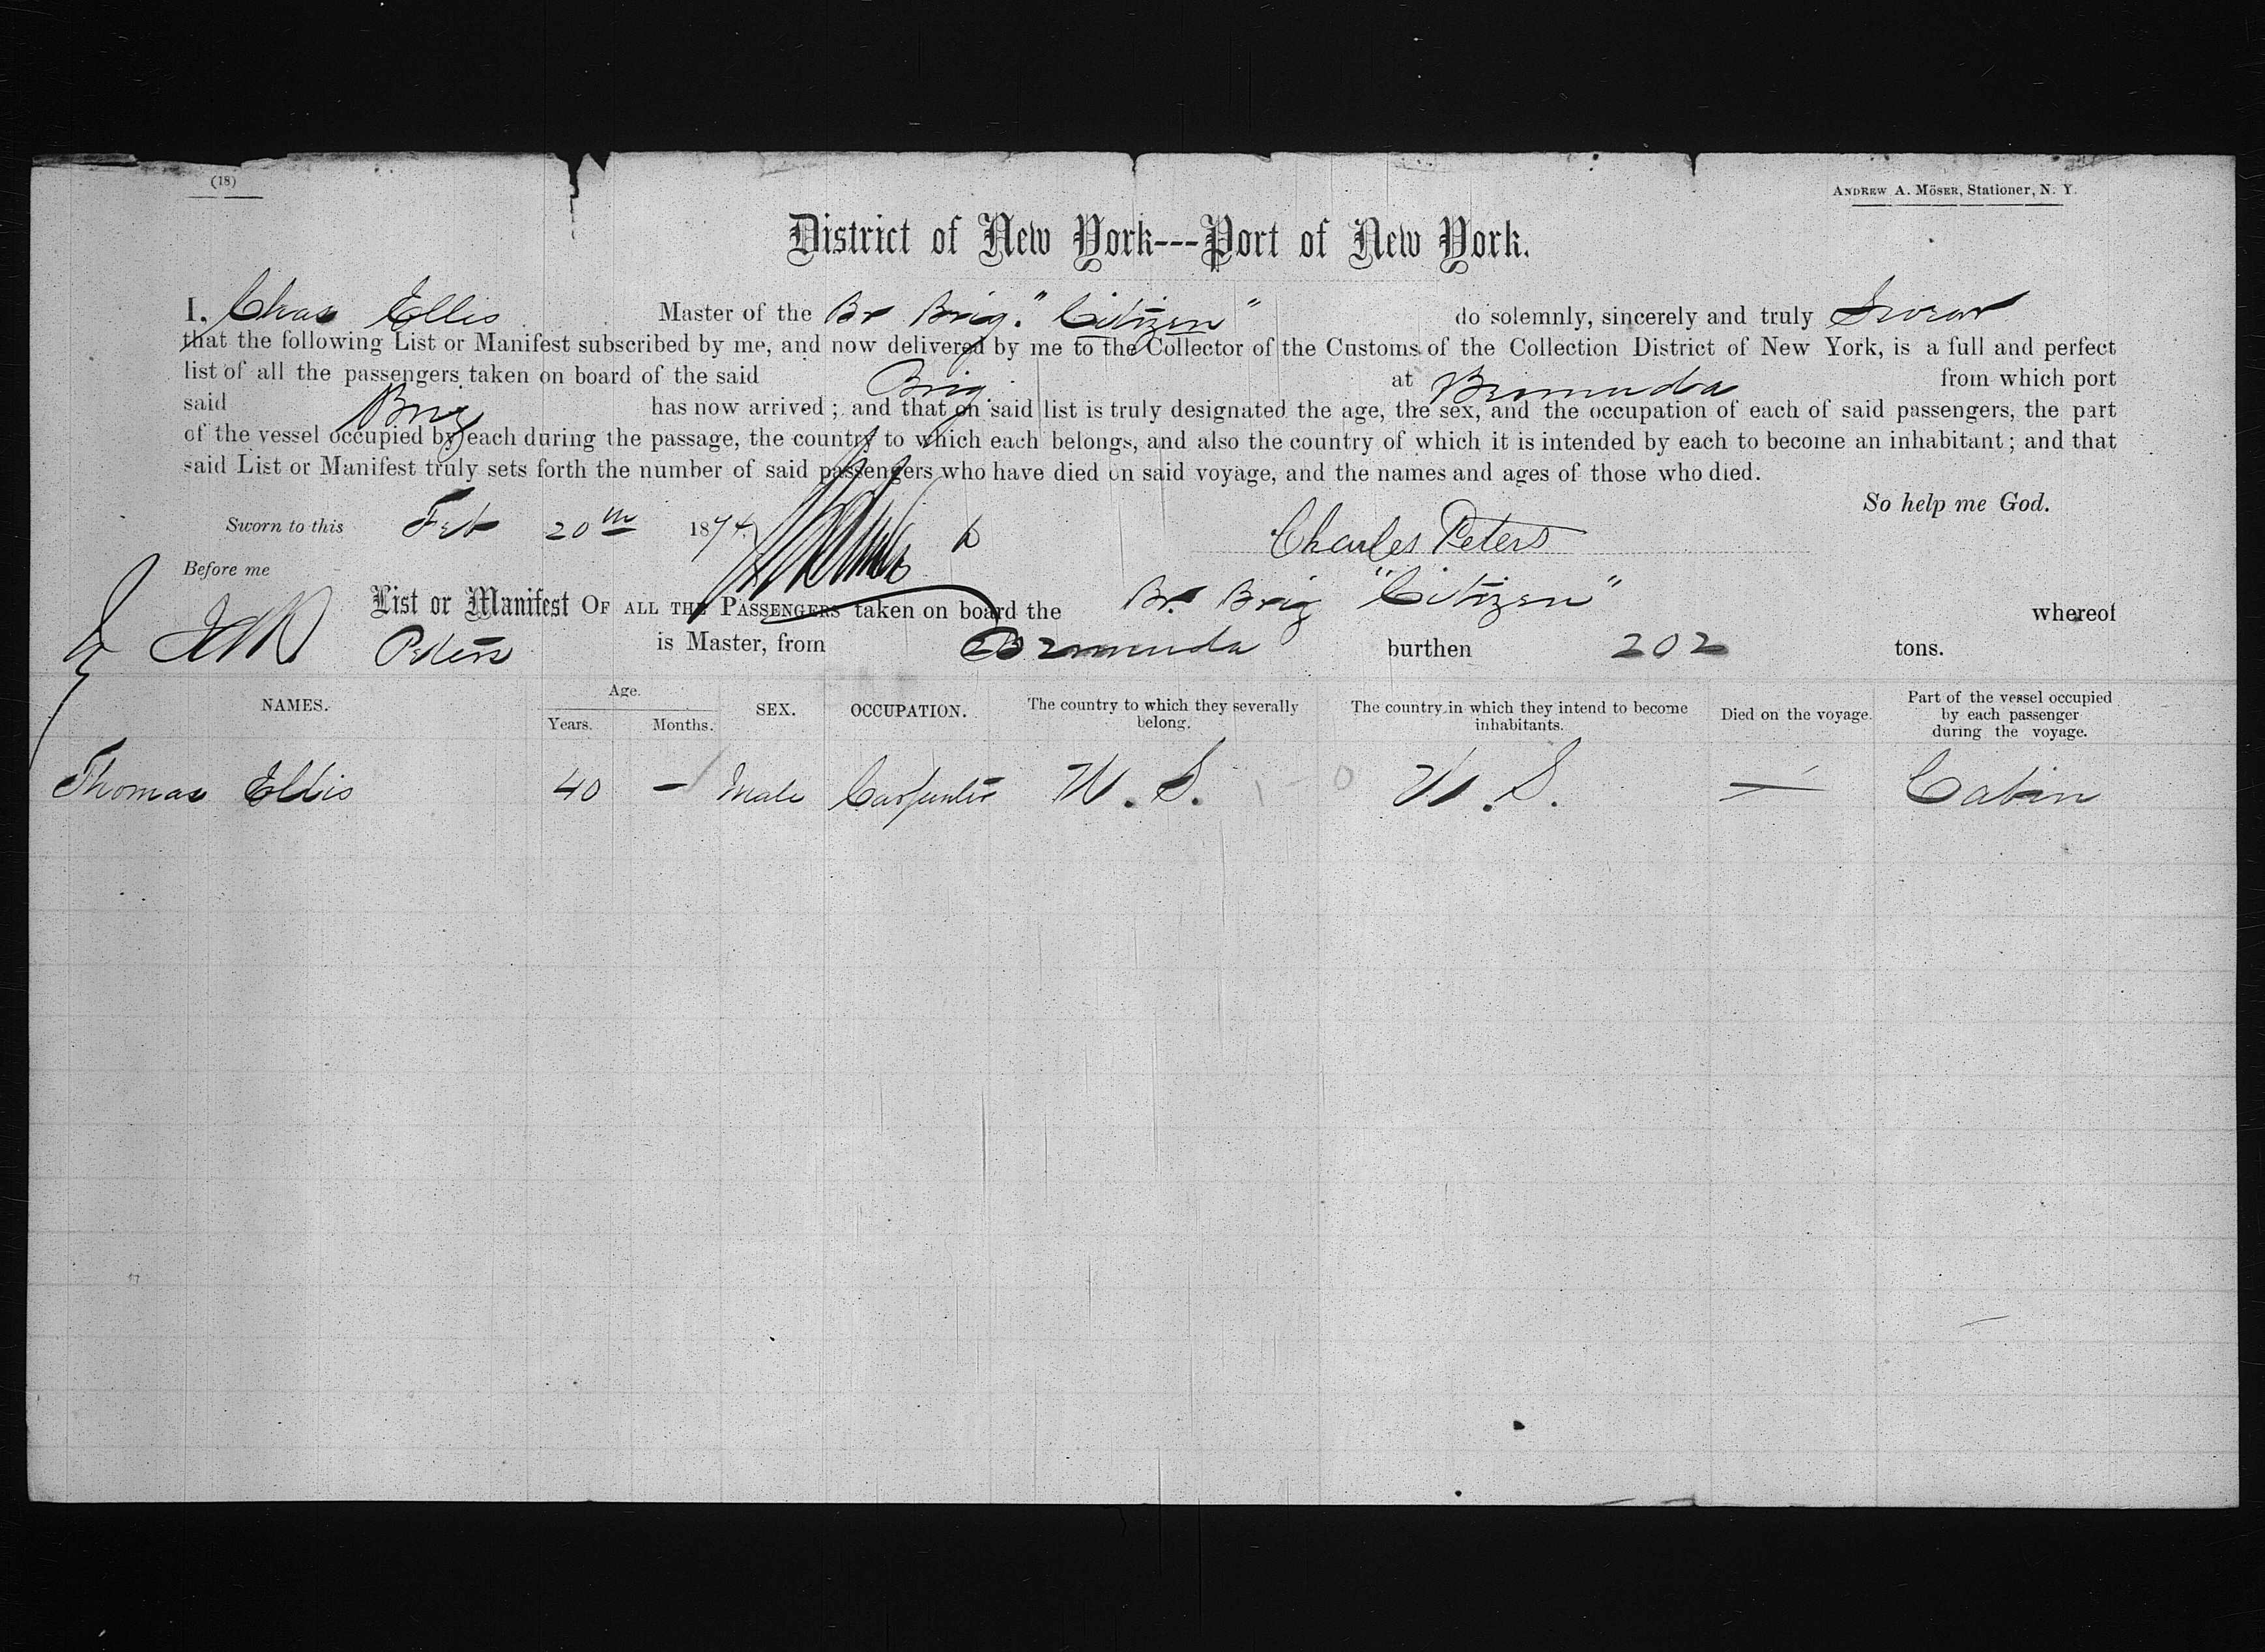 (18)
ANDREW A. MÖSER, Stationer, N. Y.
District of New York---Port of New York.
I, Chas Ellis Master of the Br Brig. "Citizen" do solemnly, sincerely and truly Swear
that the following List or Manifest subscribed by me, and now delivered by me to the Collector of the Customs of the Collection District of New York, is a full and perfect
list of all the passengers taken on board of the said Brig. at Bermuda from which port
said Brig has now arrived; and that on said list is truly designated the age, the sex, and the occupation of each of said passengers, the part
of the vessel occupied by each during the passage, the country to which each belongs, and also the country of which it is intended by each to become an inhabitant; and that
said List or Manifest truly sets forth the number of said passengers who have died on said voyage, and the names and ages of those who died.
So help me God.
Sworn to this Feb 20th 1874 Charles Peters
Before me
List or Manifest OF ALL THE PASSENGERS taken on board the Br. Brig "Citizen" whereof
Peters is Master, from Bermuda burthen 202 tons.
NAMES. Age. Years. Months. SEX. OCCUPATION. The country to which they severally belong. The country in which they intend to become inhabitants. Died on the voyage. Part of the vessel occupied by each passenger during the voyage.
Thomas Ellis 40 – Male Carpenter U. S. 1 – 0 U. S. — Cabin